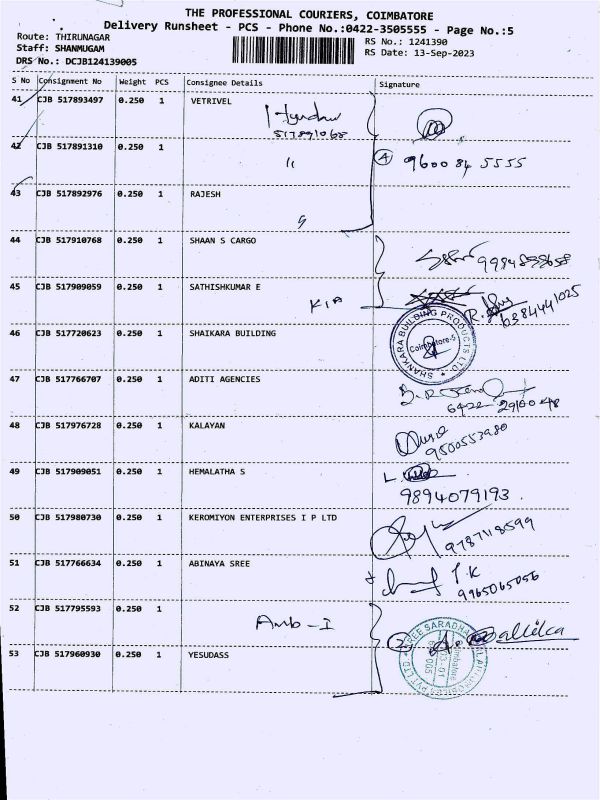 THE PROFESSIONAL COURIERS, COIMBATORE
Delivery Runsheet - PCS - Phone No.:0422-3505555 - Page No.:5
Route: THIRUNAGAR
RS No.: 1241390
Staff: SHANMUGAM
RS Date: 13-Sep-2023
DRS No.: DCJB124139005
S No Consignment No Weight PCS Consignee Details Signature
41 CJB 517893497 0.250 1 VETRIVEL
517891068
42 CJB 517891310 0.250 1
" 4 9600 84 5555
43 CJB 517892976 0.250 1 RAJESH
44 CJB 517910768 0.250 1 SHAAN S CARGO
45 CJB 517909059 0.250 1 SATHISHKUMAR E
KIA 6384441025
46 CJB 517720623 0.250 1 SHAIKARA BUILDING
SHANKARA BUILDING PRODUCTS LTD
Coimbatore-5
47 CJB 517766707 0.250 1 ADITI AGENCIES
48 CJB 517976728 0.250 1 KALAYAN
9500553980
49 CJB 517909051 0.250 1 HEMALATHA S
9894079193.
50 CJB 517980730 0.250 1 KEROMIYON ENTERPRISES I P LTD
9787118599
51 CJB 517766634 0.250 1 ABINAYA SREE
T.K
9965065056
52 CJB 517795593 0.250 1
Amb-I
2
53 CJB 517960930 0.250 1 YESUDASS